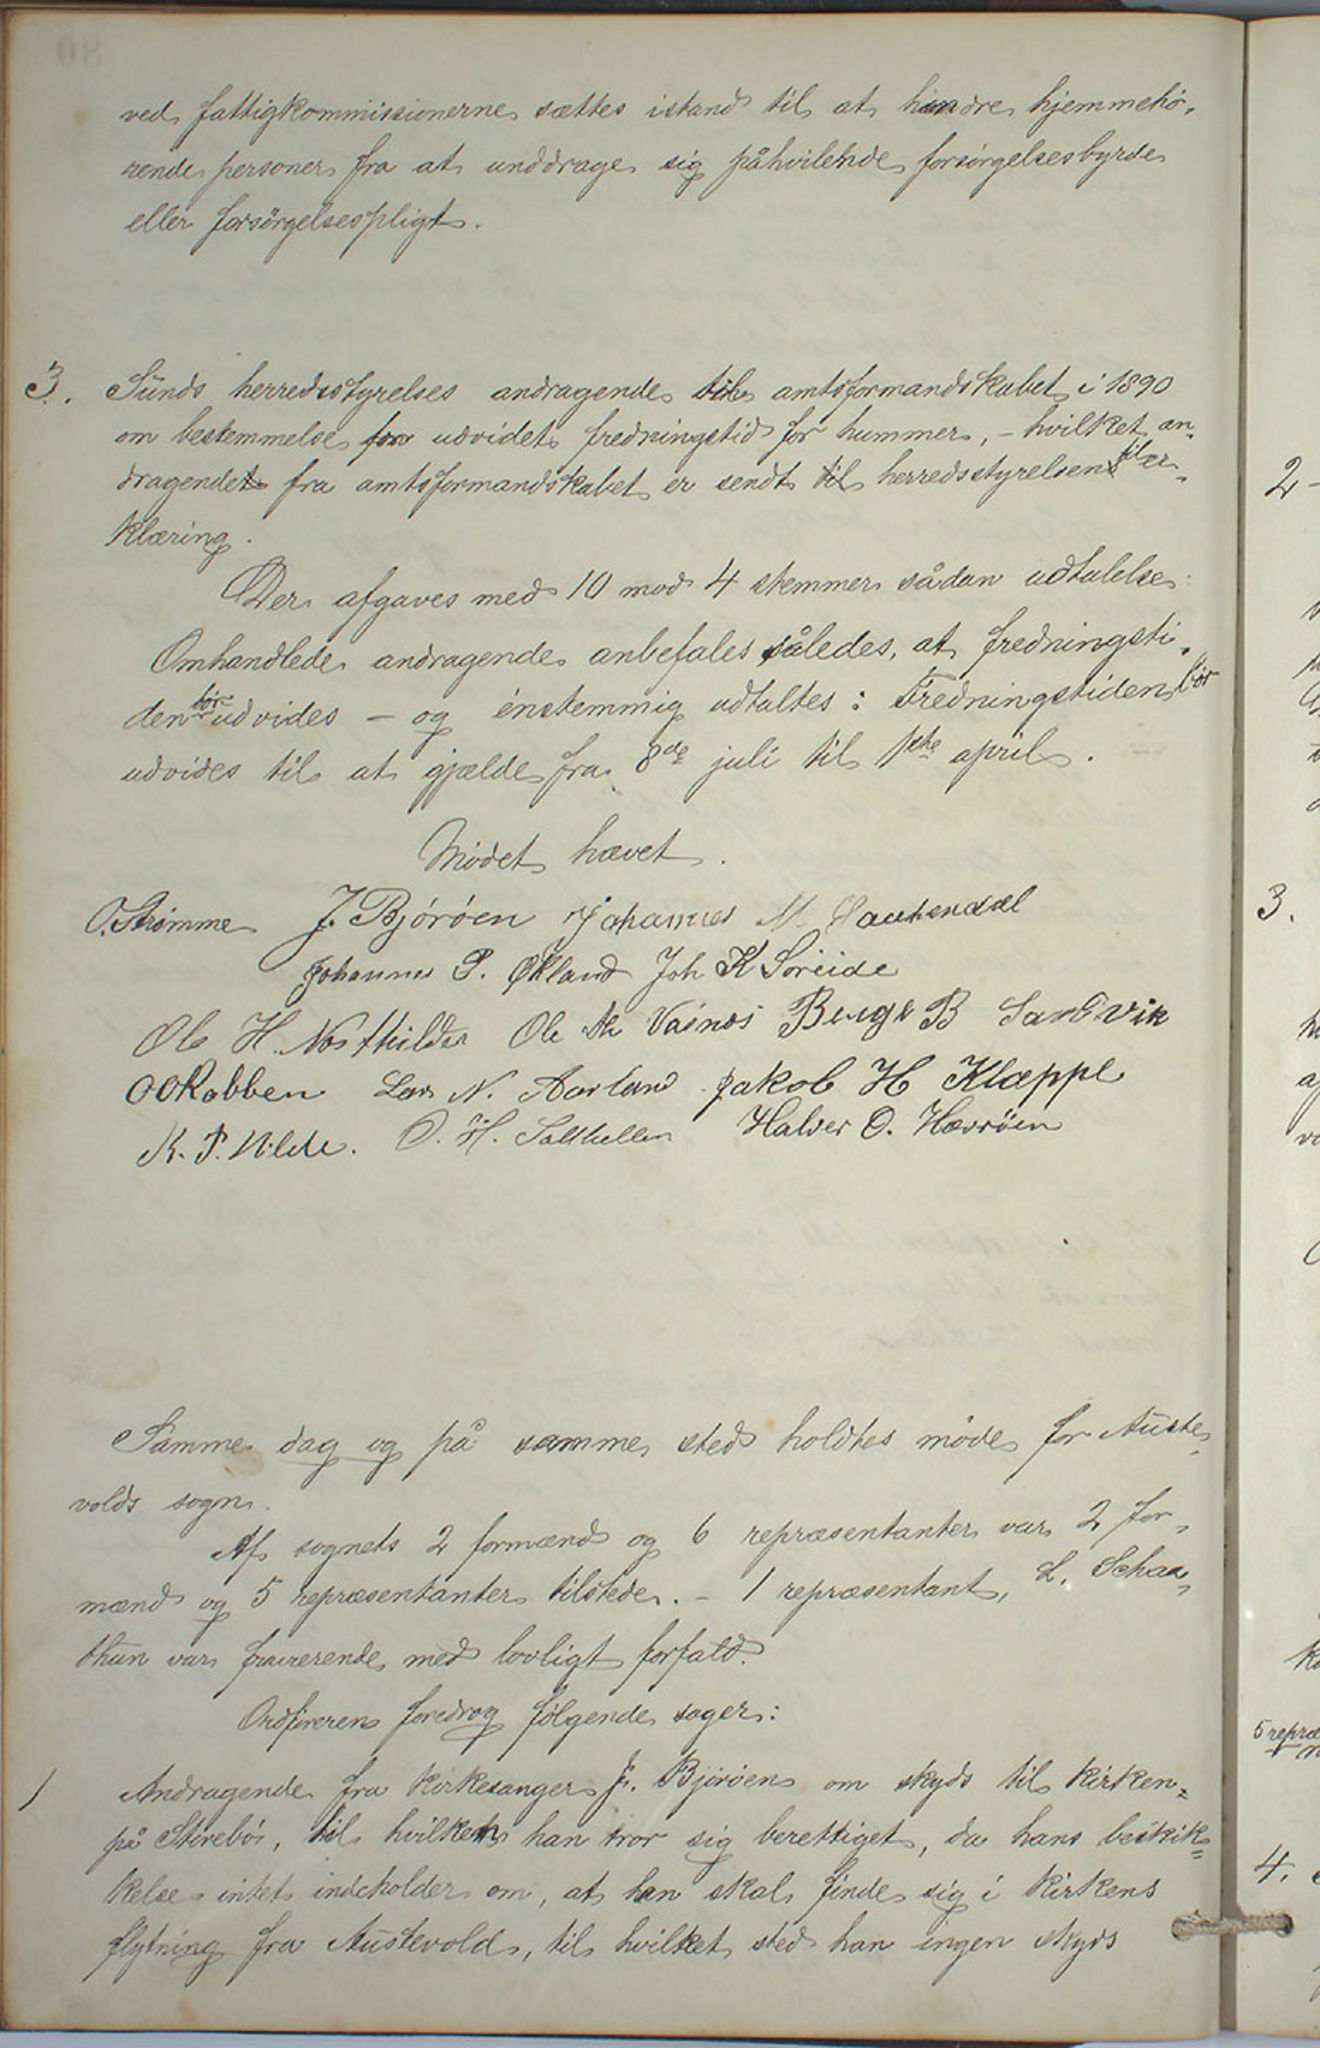 ved fattigkommissionerne sættes istand til at hindre hjemmehø-
rende personer fra at unddrage sig påhvilende forsørgelsesbyrde
eller forsørgelsespligt.
3. Sunds herredsstyrelses andragende til amtsformandskabet i 1890
om bestemmelse for udvidet fredningstid for hummer, - hvilket an-
dragende fra amtsformandskabet er sendt herredsstyrelsen til er-
klæring.
Der afgaves med 10 mod 4 stemmer sådan udtalelse:
Omhandlede andragende anbefales således, at fredningsti-
den bør udvides - og énstemmig udtaltes: Fredningstiden bør
udvides til at gjælde fra 8de juli til 1ste april.
Mødet hævet.
O. Strømme J. Bjórøen Johannes M
Johannes P. Økland Joh K Søreide
Ole H. Ole Vaines B Sandvik
OORabben Lars N. Aarland Jakob H Klæppe
K. P. Vilde. O. H. Salthellen Halver O. Hevrøen
Samme dag og på samme sted holdtes møde for Auste-
volds sogn.
Af sognets 2 formænd og 6 repræsentanter var 2 for-
mænd og 5 repræsentanter tilstede. - 1 repræsentant, L. Schaa-
thun var fraværende med lovligt forfald.
Ordføreren foredrog følgende sager:
1 Andragende fra kirkesanger J. Bjørøen om skyds til kirken
på Storebø, til hvilken han tror sig berettiget, da hans beskik-
kelse intet indeholder om, at han skal finde sig i kirkens
flytning fra Austevold, til hvilket sted han ingen skyds
2 -
3.
5 repræ
4.